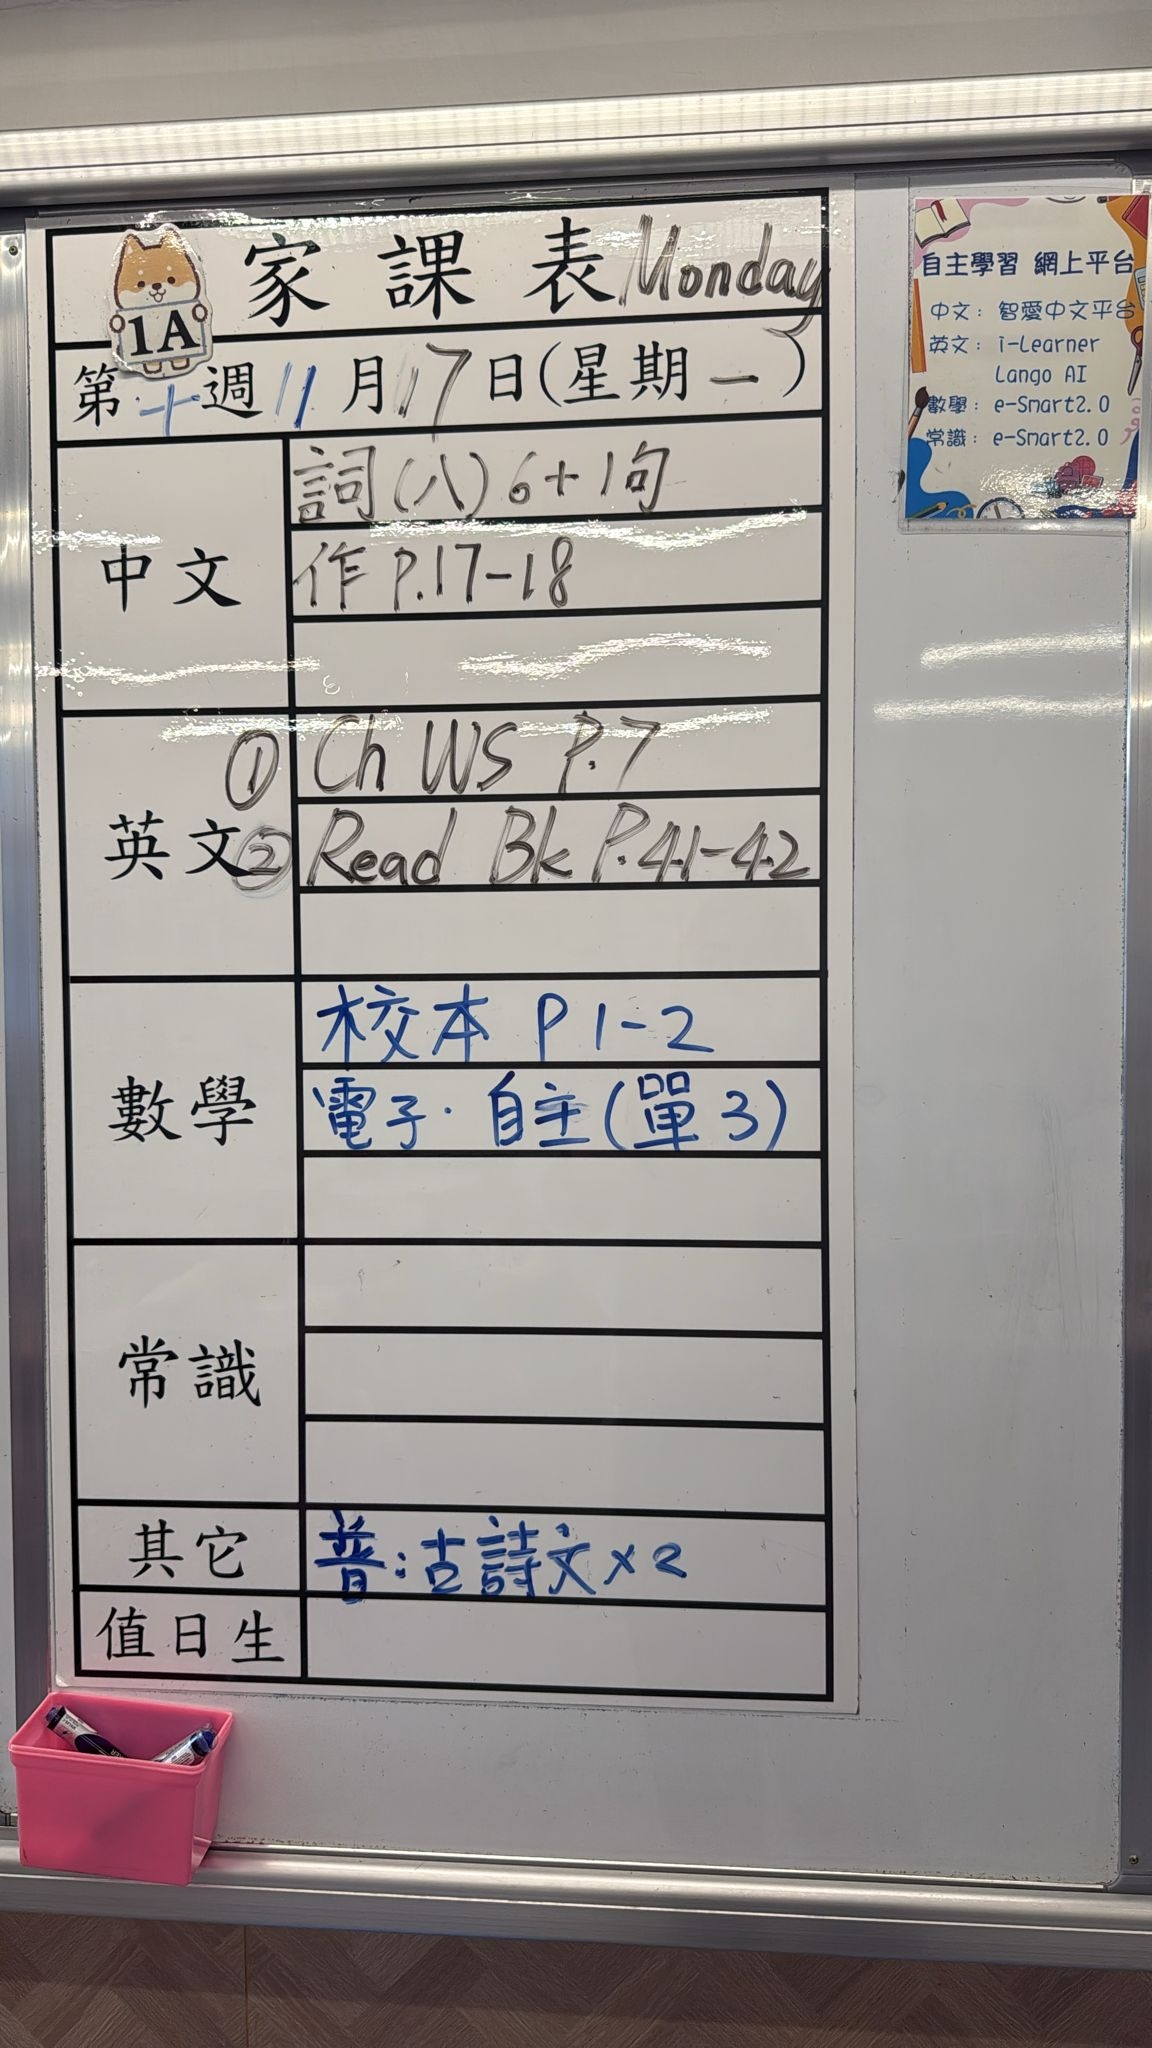 家課表 Monday
1A
第十週 11月17日(星期一)
中文
詞(八)6+1句
作 P.17-18
英文
① Ch WS P.7
② Read Bk P.41-42
數學
校本 P 1-2
電子. 自主(單3)
常識
其它
普:古詩文x2
值日生
自主學習 網上平台
中文: 智愛中文平台
英文: i-Learner
Lango AI
數學: e-Smart2.0
常識: e-Smart2.0